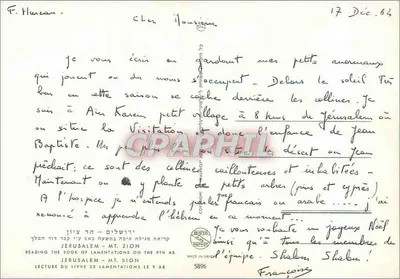 F. Mureau
17 Déc. 64
Cher Monsieur
je vous écris en gardant mes petits
qui jouent ou du nous s'occupent - Dehors le soleil très
bas en cette saison se cache derrière les collines. Je
suis à Ain Karem petit village à 8 kms de Jérusalem où
on situe la Visitation et donc l'enfance de Jean
Baptiste. Un peu plus loin c'est le désert où Jean
prêchait: ce sont des collines caillouteuses et inhabitées -
Maintenant on y plante de petits arbres (pins et cyprès)
A l'hospice je n'entends parler français ou arabe ..... j'ai
renoncé à apprendre l'hébreu en ce moment...
Je vous souhaite un joyeux Noël
ainsi qu'à tous les membres de
l'équipe. Shalom Shalom!
Françoise
CPARHTL
ירושלים - הר ציון
קריאת מגילת איכה בתשעה באב ע"י קבר דוד המלך
JERUSALEM - MT. ZION
READING THE BOOK OF LAMENTATIONS ON THE 9TH AB
JERUSALEM - MT. SION
LECTURE DU LIVRE DE LAMENTATIONS LE 9 AB
5896